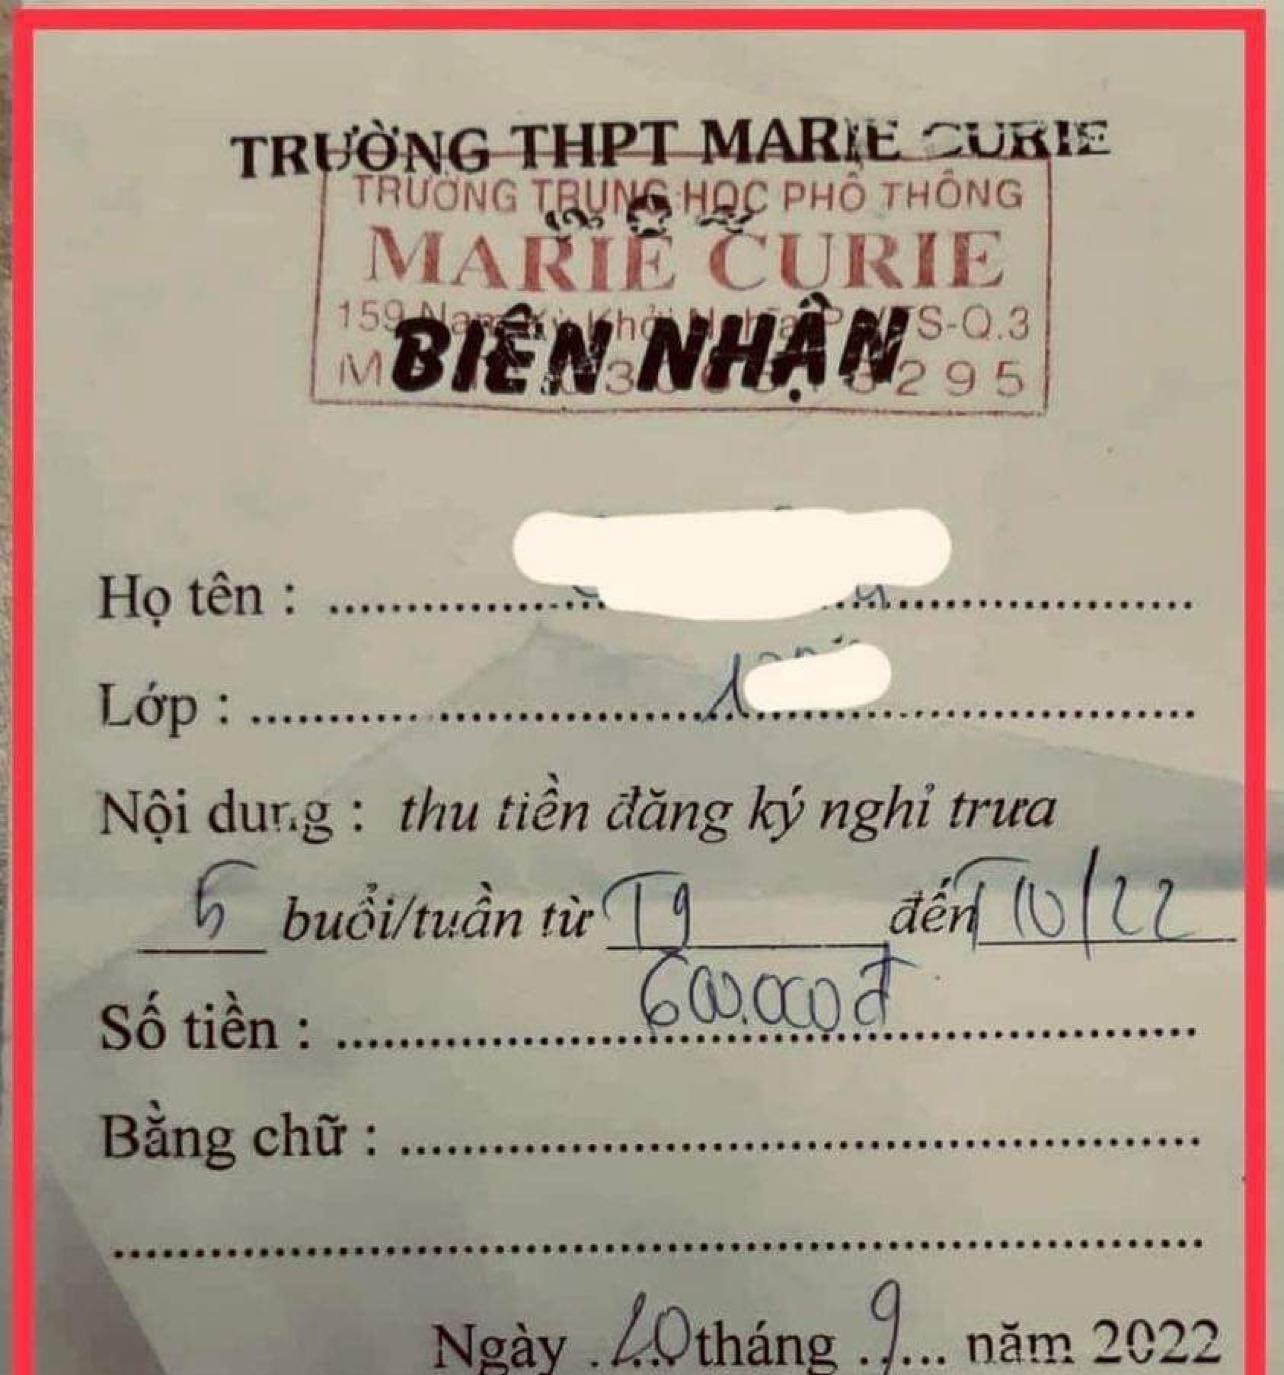 TRƯỜNG THPT MARIE CURIE
TRƯỜNG TRUNG HỌC PHỔ THÔNG
MARIE CURIE
159 Nam Kỳ Khởi Nghĩa P.VTS-Q.3
BIÊN NHẬN
Họ tên :
Lớp : 1
Nội dung : thu tiền đăng ký nghỉ trưa
5 buổi/tuần từ T9 đến T10/22
Số tiền : 600.000đ
Bằng chữ :
Ngày 20 tháng 9 năm 2022